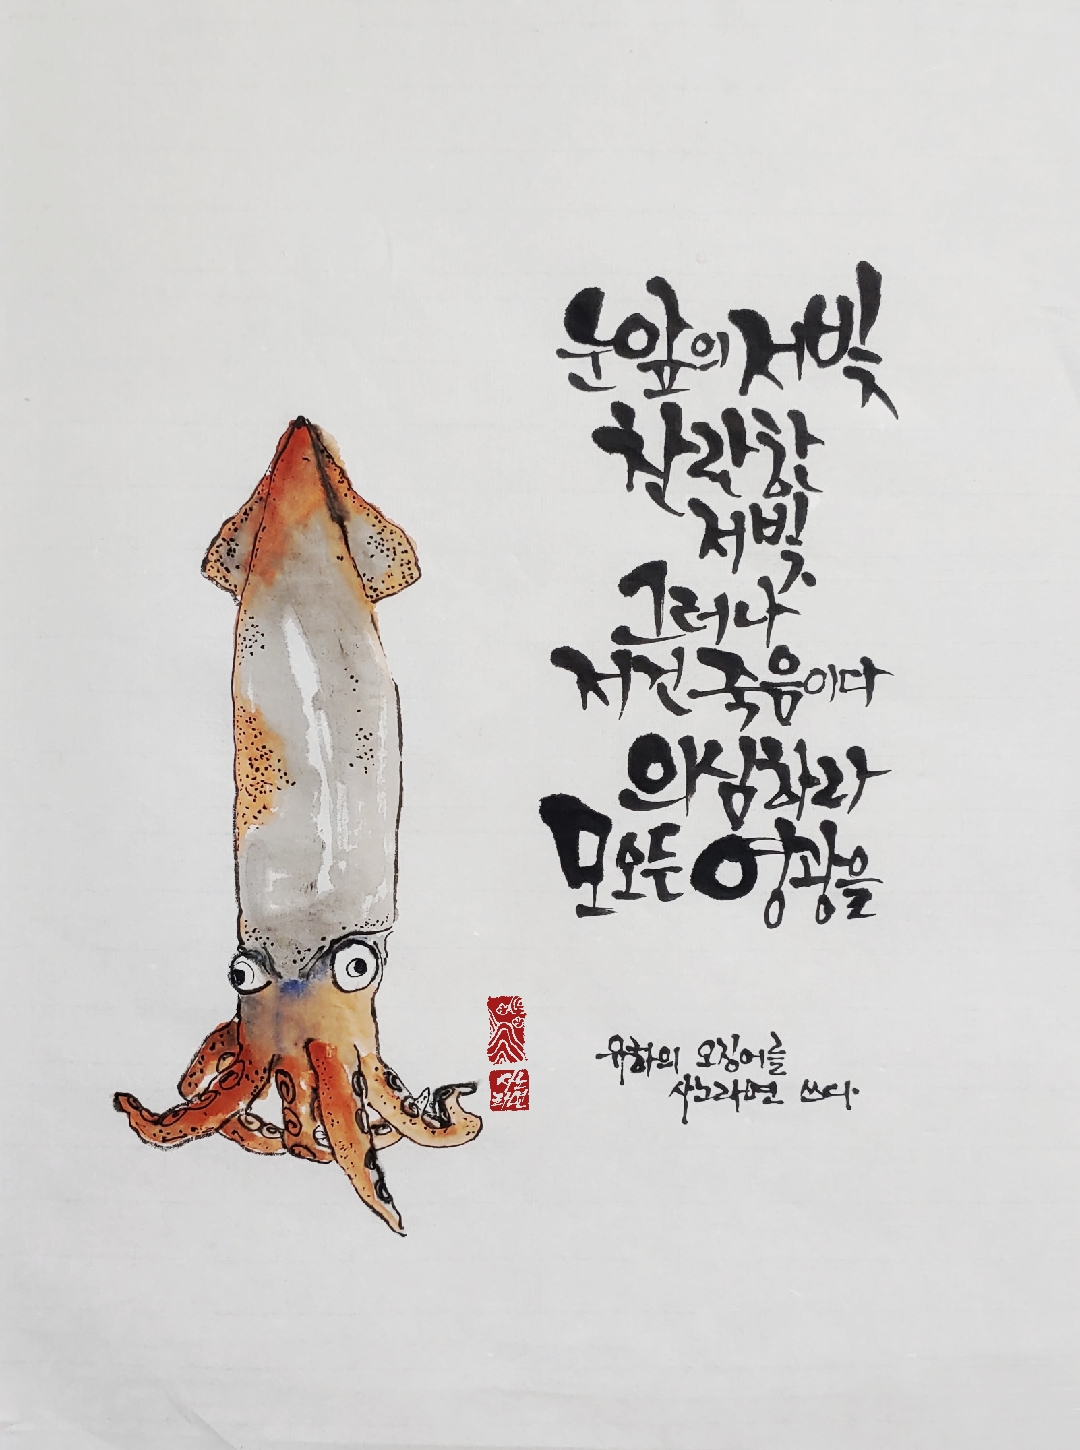 눈앞의 저 빛
찬란한
저 빛
그러나
저건 죽음이다
의심하라
모오든 영광을
유하의 오징어를
사노라면 쓰다.